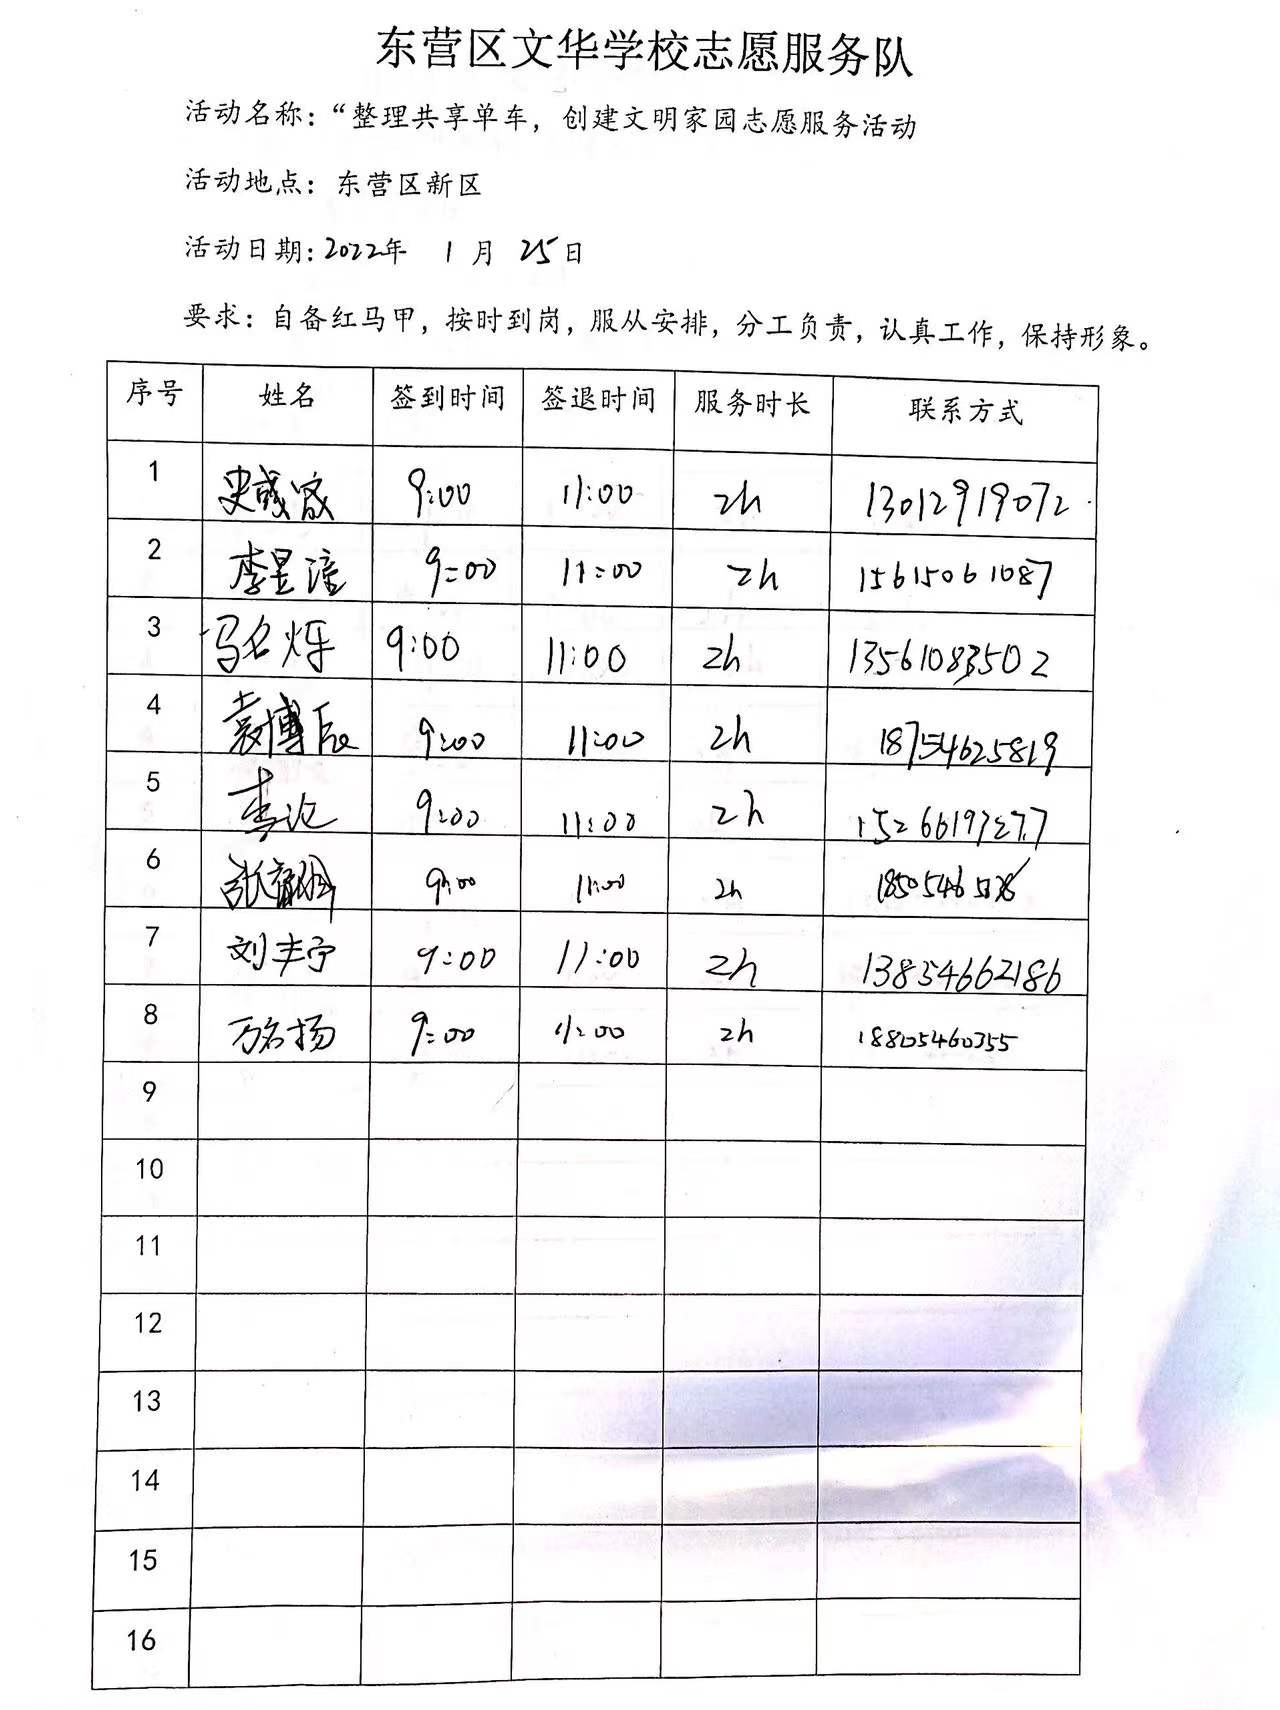 东营区文华学校志愿服务队
活动名称：“整理共享单车，创建文明家园志愿服务活动
活动地点：东营区新区
活动日期：2022年 1 月 25日
要求：自备红马甲，按时到岗，服从安排，分工负责，认真工作，保持形象。
序号 姓名 签到时间 签退时间 服务时长 联系方式
1 史 9:00 11:00 2h 13012919072
2 李昱潼 9:00 11:00 2h 15615061087
3 冯名烁 9:00 11:00 2h 13561083502
4 袁博辰 9:00 11:00 2h 18754625819
5 9:00 11:00 2h
6 张 9:00 11:00 2h
7 刘丰宁 9:00 11:00 2h 13854662186
8 万名扬 9:00 11:00 2h 18805460355
9
10
11
12
13
14
15
16